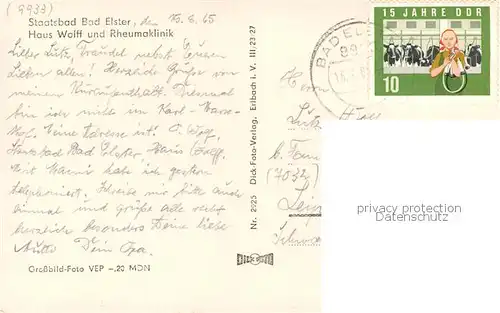 (9933)
Staatsbad Bad Elster, den 15.6.65
Haus Wolff und Rheumaklinik
Lieber Lutz, Traudel nebst
Lieben allen! Herzliche Grüße von
meinen Kuraufenthalt. Diesmal
bin ich nicht im Karl-Marx-
Meine Adresse ist:
Staatsbad Bad Elster Haus Wolff.
Mit habe ich gestern
telephoniert. Schreibe mir bitte auch
einmal und grüße alle recht
herzlich besonders Deine liebe
Mutti Dein Opa.
Großbild-Foto VEP -,20 MDN
Nr. 2925 Dick-Foto-Verlag, Erlbach i. V. III/23/27
BAD ELSTER
15 JAHRE DDR
10
Herrn
Lutz
b. Fam
(7032)
Leip
privacy protection
Datenschutz